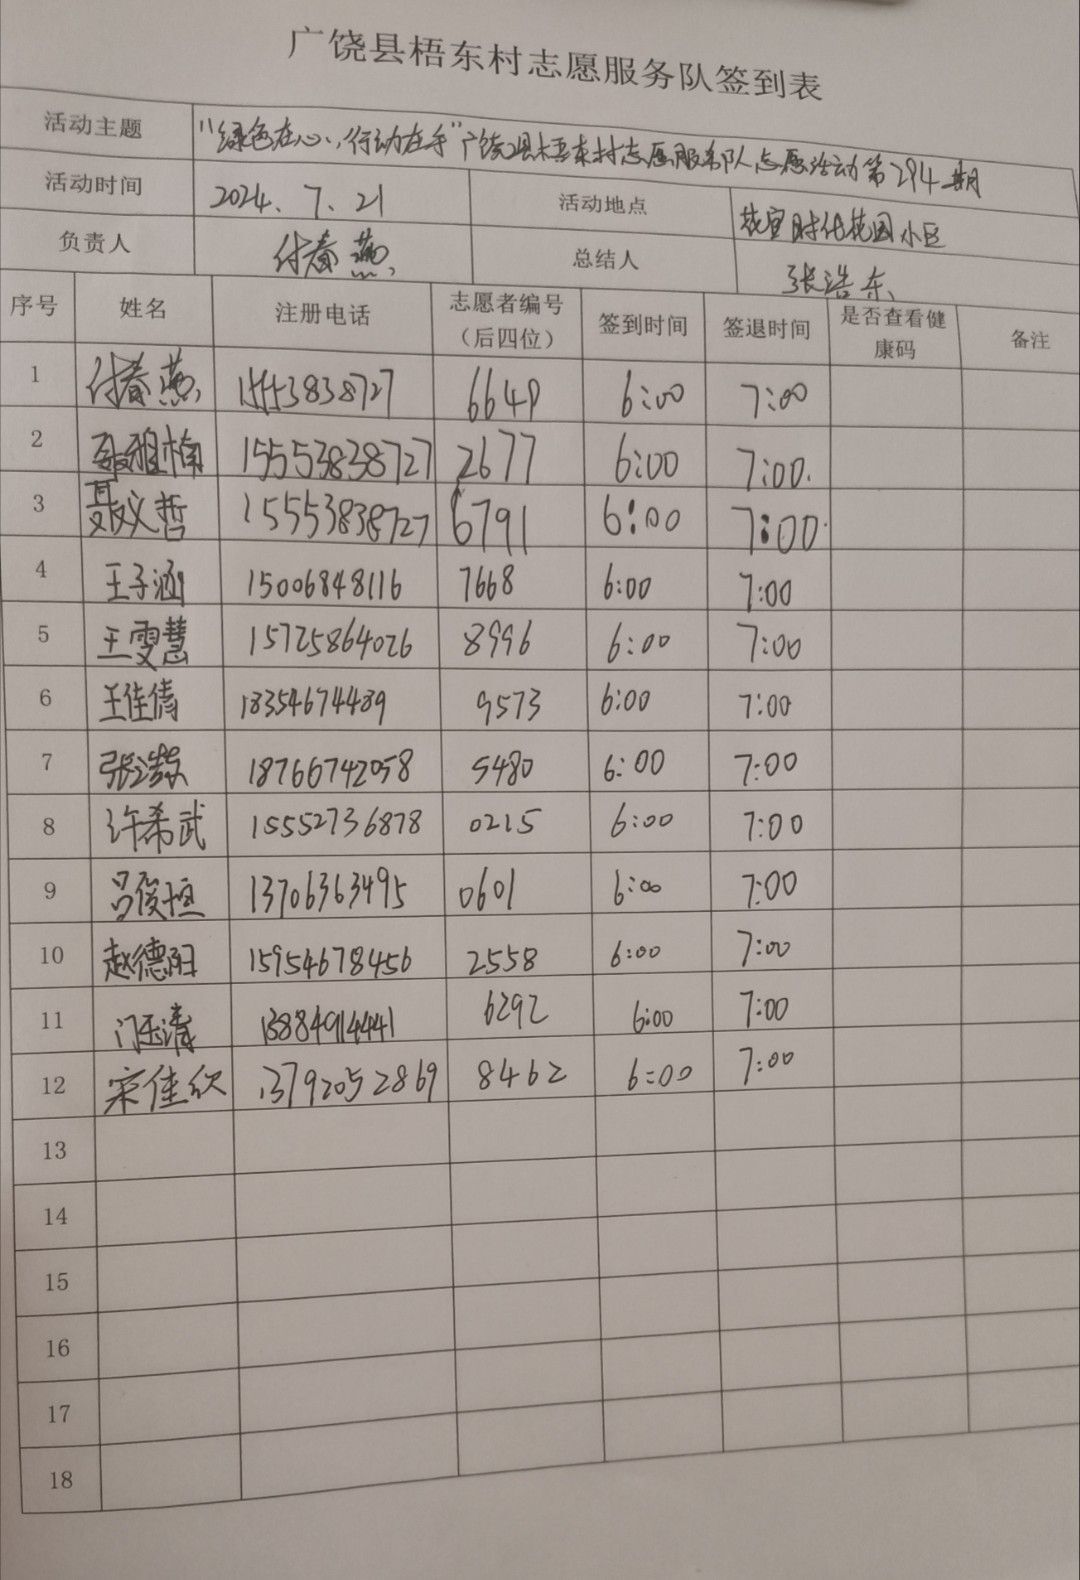 广饶县梧东村志愿服务队签到表
活动主题 "绿色在心,行动在手"广饶县梧东村志愿服务队志愿活动第294期
活动时间 2024、7、21 活动地点 时代花园小区
负责人 付春燕 总结人 张浩东
序号 姓名 注册电话 志愿者编号(后四位) 签到时间 签退时间 是否查看健康码 备注
1 付春燕 15553838727 6649 6:00 7:00
2 聂雅楠 15553838727 2677 6:00 7:00
3 聂义哲 15553838727 6791 6:00 7:00
4 王子涵 15006848116 7668 6:00 7:00
5 王雯慧 15725864026 8996 6:00 7:00
6 王佳倩 18354674489 9573 6:00 7:00
7 张浩东 18766742058 5480 6:00 7:00
8 许希武 15552736878 0215 6:00 7:00
9 吕俊恒 13706363495 0601 6:00 7:00
10 赵德阳 15954678456 2558 6:00 7:00
11 门玉清 13884914441 6292 6:00 7:00
12 宋佳欣 13792052869 8462 6:00 7:00
13
14
15
16
17
18